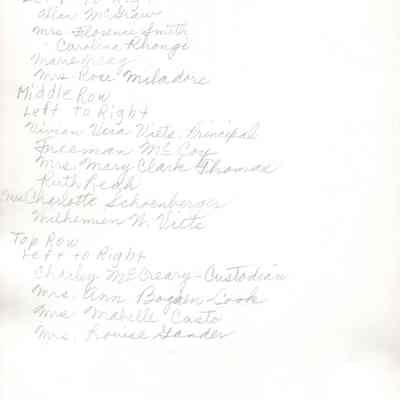 Left to Right
Allan McGraw
Mrs Florence Smith
Carolina Rhongi
Mamie
Mrs Rose Miladore
Middle Row
Left to Right
Vivian Vora Viets, Principal
Freeman McCoy
Mrs. Mary Clark Thomas
Ruth Leah
Mrs Charlotte Schoenberger
Wilhemien W. Vitte
Top Row
Left to Right
Charley McCreary - Custodian
Mrs. Ann Bogden - Cook
Mrs Mabelle Casto
Mrs. Louise Gander